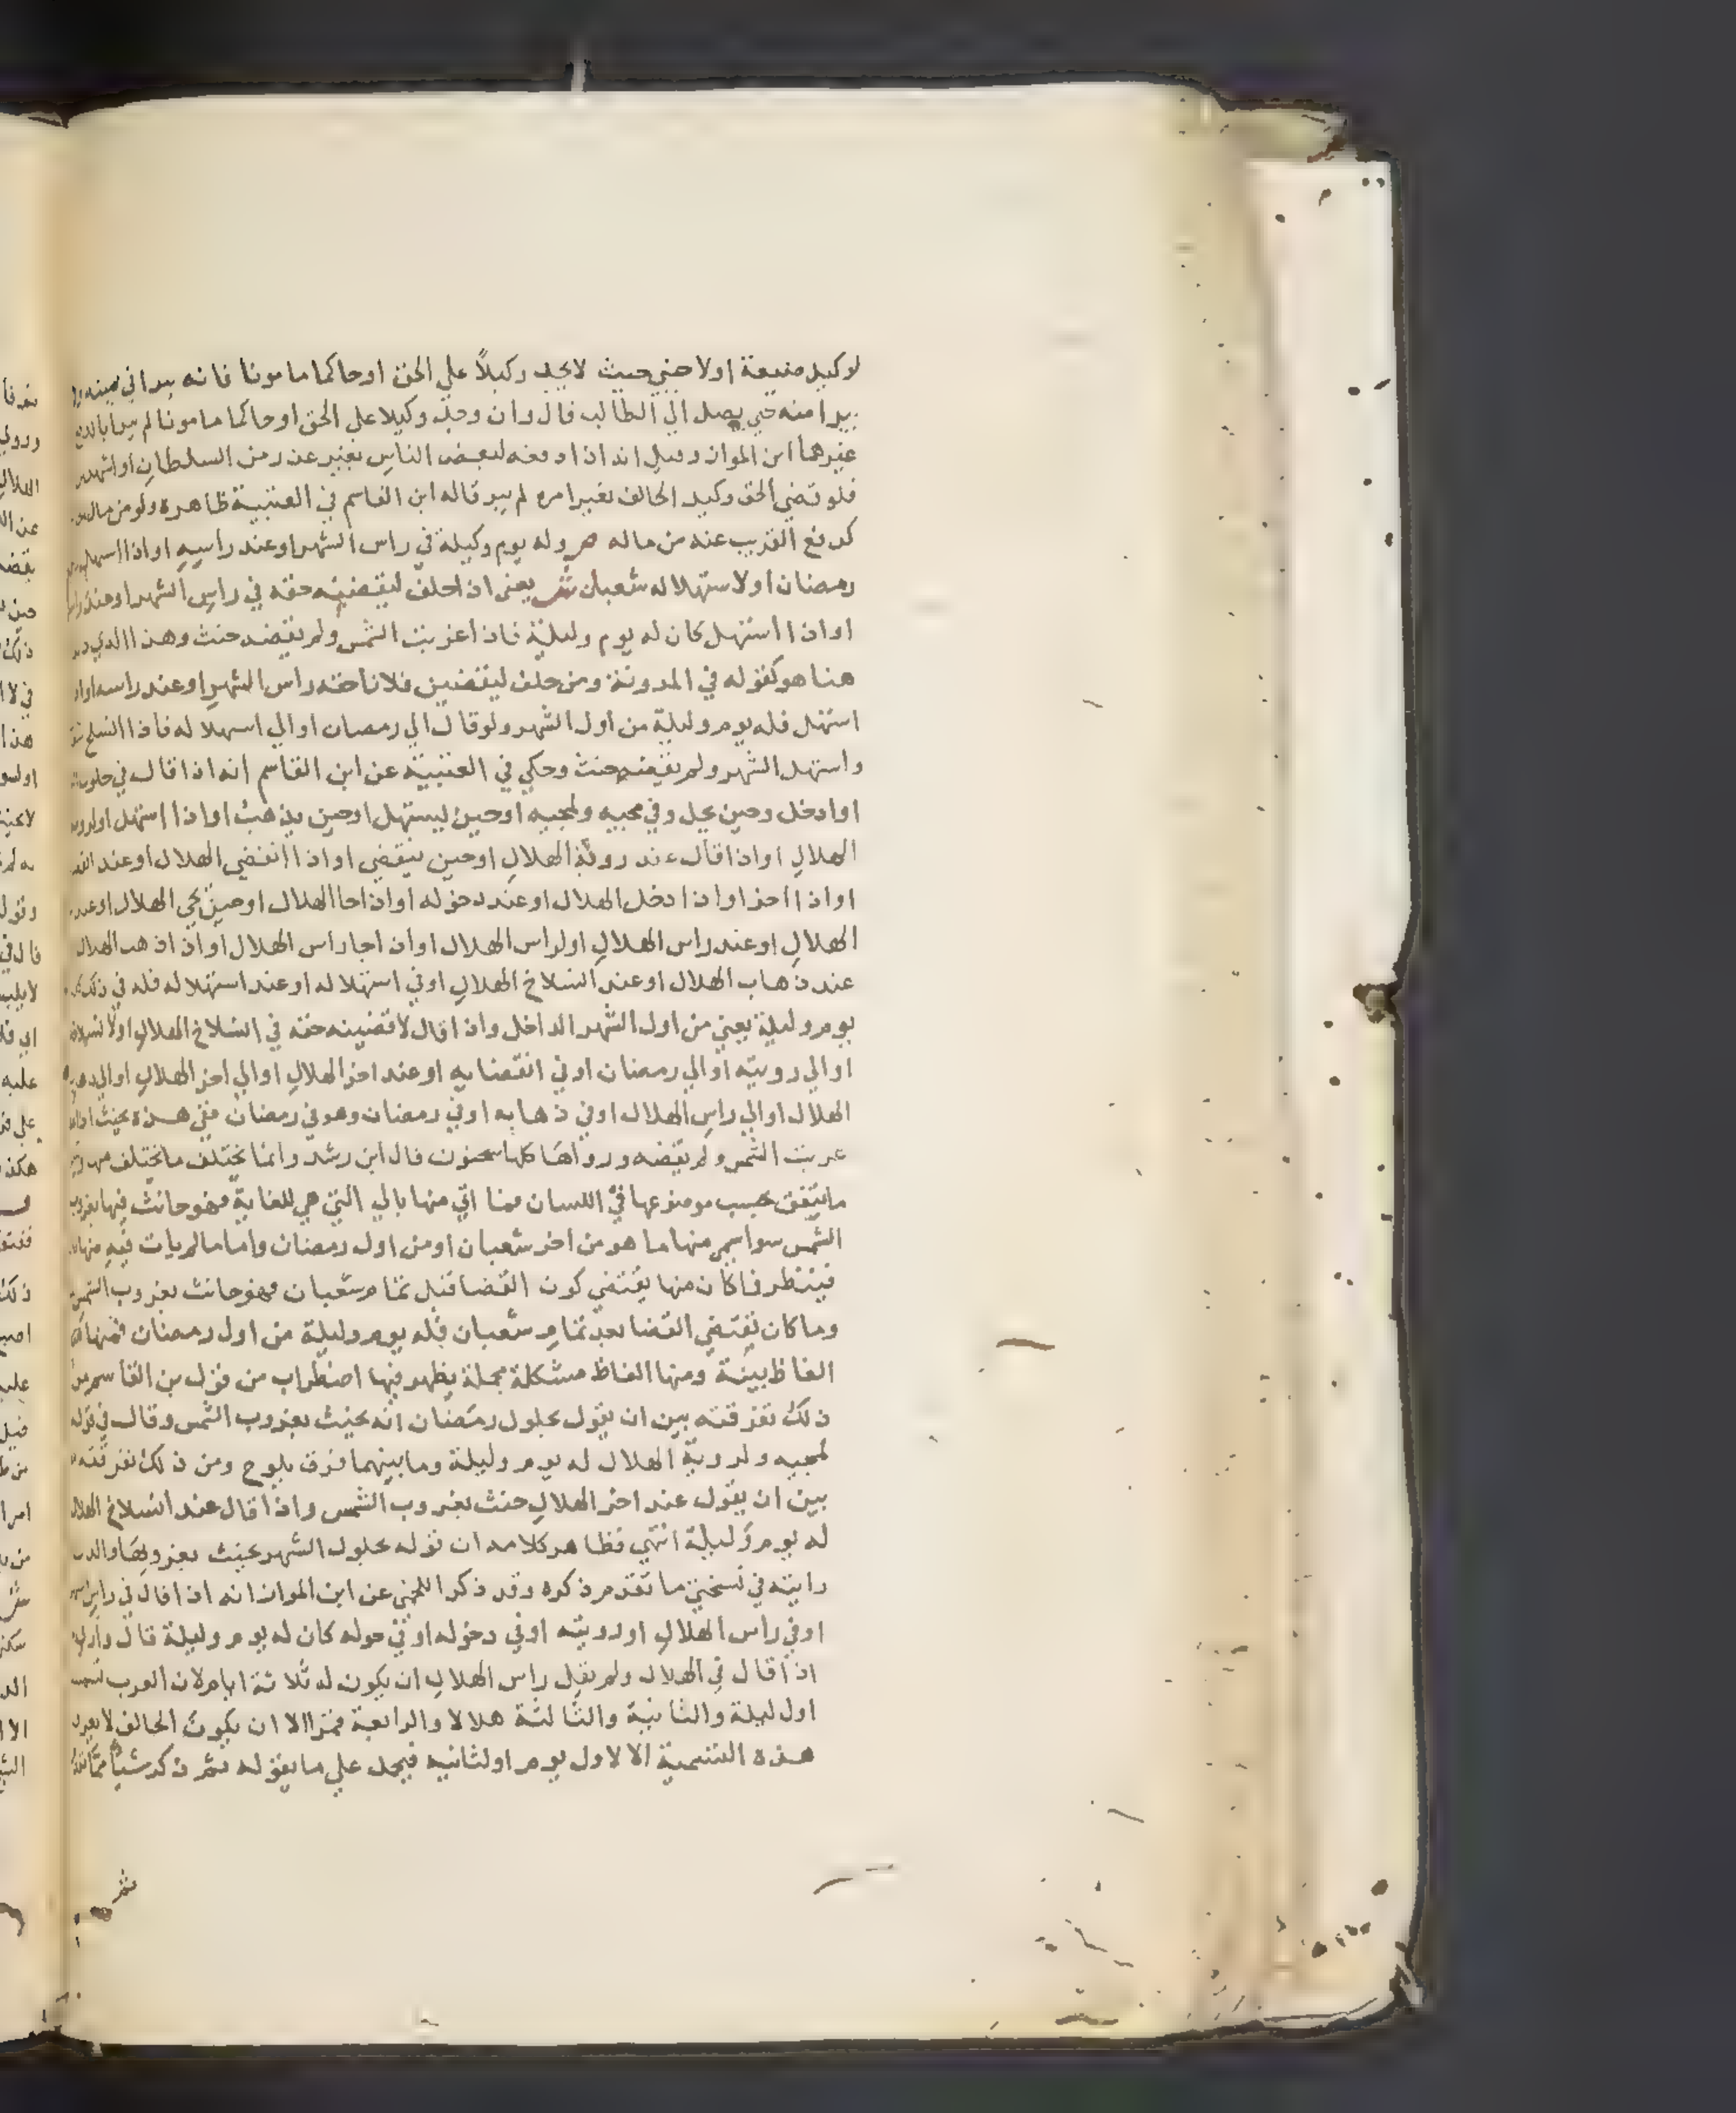 لوكيل ضيعة اولاجنبي حيث لايجد وكيلاً علي الحق اوحاكما مامونا فانه يبرا في يمينه ولا
يبرا منه حتي يصل الي الطالب قال وان وجد وكيلا علي الحق اوحاكما مامونا لم يبرا بالدفع
غيرهما ابن المواز وقيل انه اذا دفعه لبعض الناس بغير عذر من السلطان او اشهد
فلو قضي الحق وكيل الحالف بغير امره لم يبر قاله ابن القاسم في العتبية ظاهره ولو من مال
كدفع القريب عنه من ماله ص وله يوم وليلة في راس الشهر اوعند راسه او اذا استهل
رمضان اولاستهلاله شعبان ش يعني اذا حلف ليقضينه حقه في راس الشهر اوعند راس
او اذا استهل كان له يوم وليلة فاذا غربت الشمس ولم يقضه حنث وهذا الذي
هنا هو كقوله في المدونة ومن حلف ليقضين فلانا حقه راس الشهر اوعند راسه اواذ
استهل فله يوم وليلة من اول الشهر ولو قال الي رمضان او الي استهلاله فاذا انسلخ
واستهل الشهر ولم يقضه حنث وحكي في العتبية عن ابن القاسم انه اذا قال في حلول
او ادخل وحين يحل وفي مجيه ولمجيه اوحين يستهل اوحين يذهب او اذا استهل اولروية
الهلال او اذا قال عند روية الهلال اوحين ينقضي او اذا انقضي الهلال اوعند
او اذا اخر او اذا دخل الهلال اوعند دخوله او اذا جا الهلال اوحين يجي الهلال اوعند
الهلال اوعند راس الهلال اولراس الهلال او اذا جا راس الهلال او اذا ذهب الهلال
عند ذهاب الهلال اوعند انسلاخ الهلال اوفي استهلاله اوعند استهلاله فله في ذلك
يوم وليلة يعني من اول الشهر الداخل واذا قال لاقضينه حقه في انسلاخ الهلال اولانسلاخ
اوالي رويته اوالي رمضان اوفي انقضايه اوعند اخر الهلال اوالي اخر الهلال اوالي
الهلال اوالي راس الهلال اوفي ذهابه اوفي رمضان وهو في رمضان ففي هذه يحنث اذا
غربت الشمس ولم يقضه ورواها كلها سحنون قال ابن رشد وانما يختلف مايختلف منها
مايتفق بحسب موضوعها في اللسان فما اتي منها بالي التي هي للغاية فهو حانث فيها بغروب
الشمس سواسمي منها ما هو من اخر شعبان اومن اول رمضان واما مالم يات فيه منها
فينظر فاكان منها يقتضي كون القضا قبل تمام شعبان فهو حانث بغروب الشمس
وماكان يقتضي القضا بعد تمام شعبان فله يوم وليلة من اول رمضان فمنها
الفاظ بينة ومنها الفاظ مشكلة مجملة يظهر فيها اضطراب من قول بن القاسم من
ذلك تفرقته بين ان يقول بحلول رمضان انه يحنث بغروب الشمس وقال في قوله
لمجيه ولروية الهلال له يوم وليلة ومابينهما فرق يلوح ومن ذلك تفرقته
بين ان يقول عند اخر الهلال حنث بغروب الشمس واذا قال عند انسلاخ الهلال
له يوم وليلة انتهي فظاهر كلامه ان قوله بحلول الشهر يحنث بغروبها والذي
رايته في نسختي ماتقدم ذكره وقد ذكر اللخمي عن ابن المواز انه اذا قال في راس
اوفي راس الهلال اورويته اوفي دخوله اوفي حوله كان له يوم وليلة قال واري
اذا قال في الهلال ولم يقل راس الهلال ان يكون له ثلاثة ايام لان العرب تسمي
اول ليلة والثانية والثالثة هلالا والرابعة قمرا الا ان يكون الحالف لايعرف
هذه التسمية الا لاول يوم اولثانيه فيحمل علي مايقوله ثم ذكر شيا مما
ثم